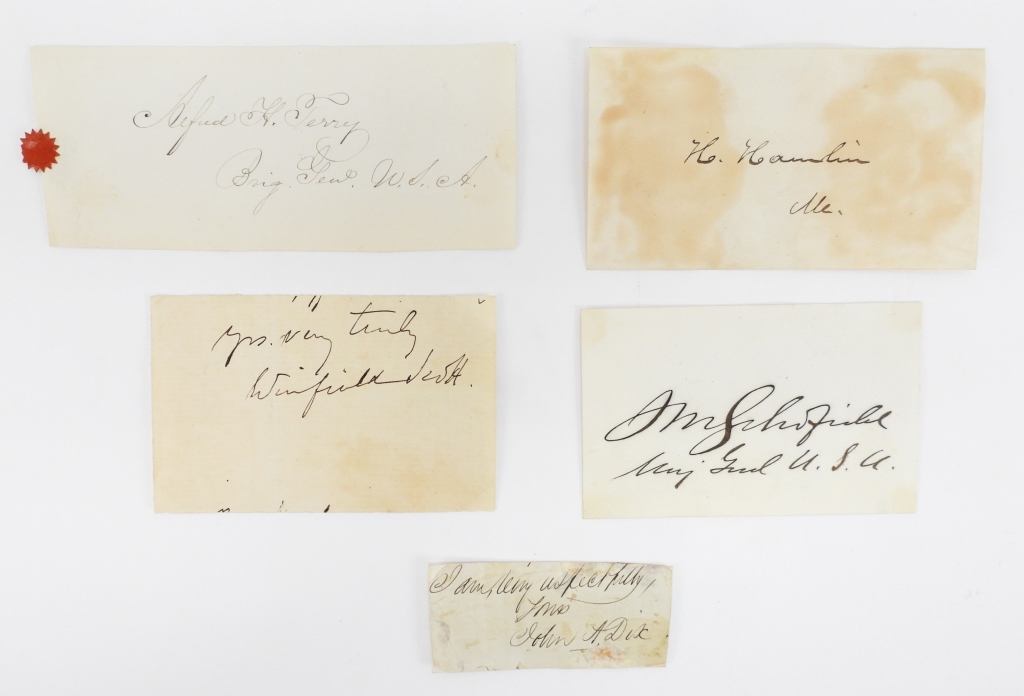 Alfred H. Terry
Brig. Genl. U.S.A.
H. Hamlin
Me.
yrs. very truly
Winfield Scott.
JM Schofield
Maj Genl U.S.A.
I am, very respectfully,
Yours
John A. Dix